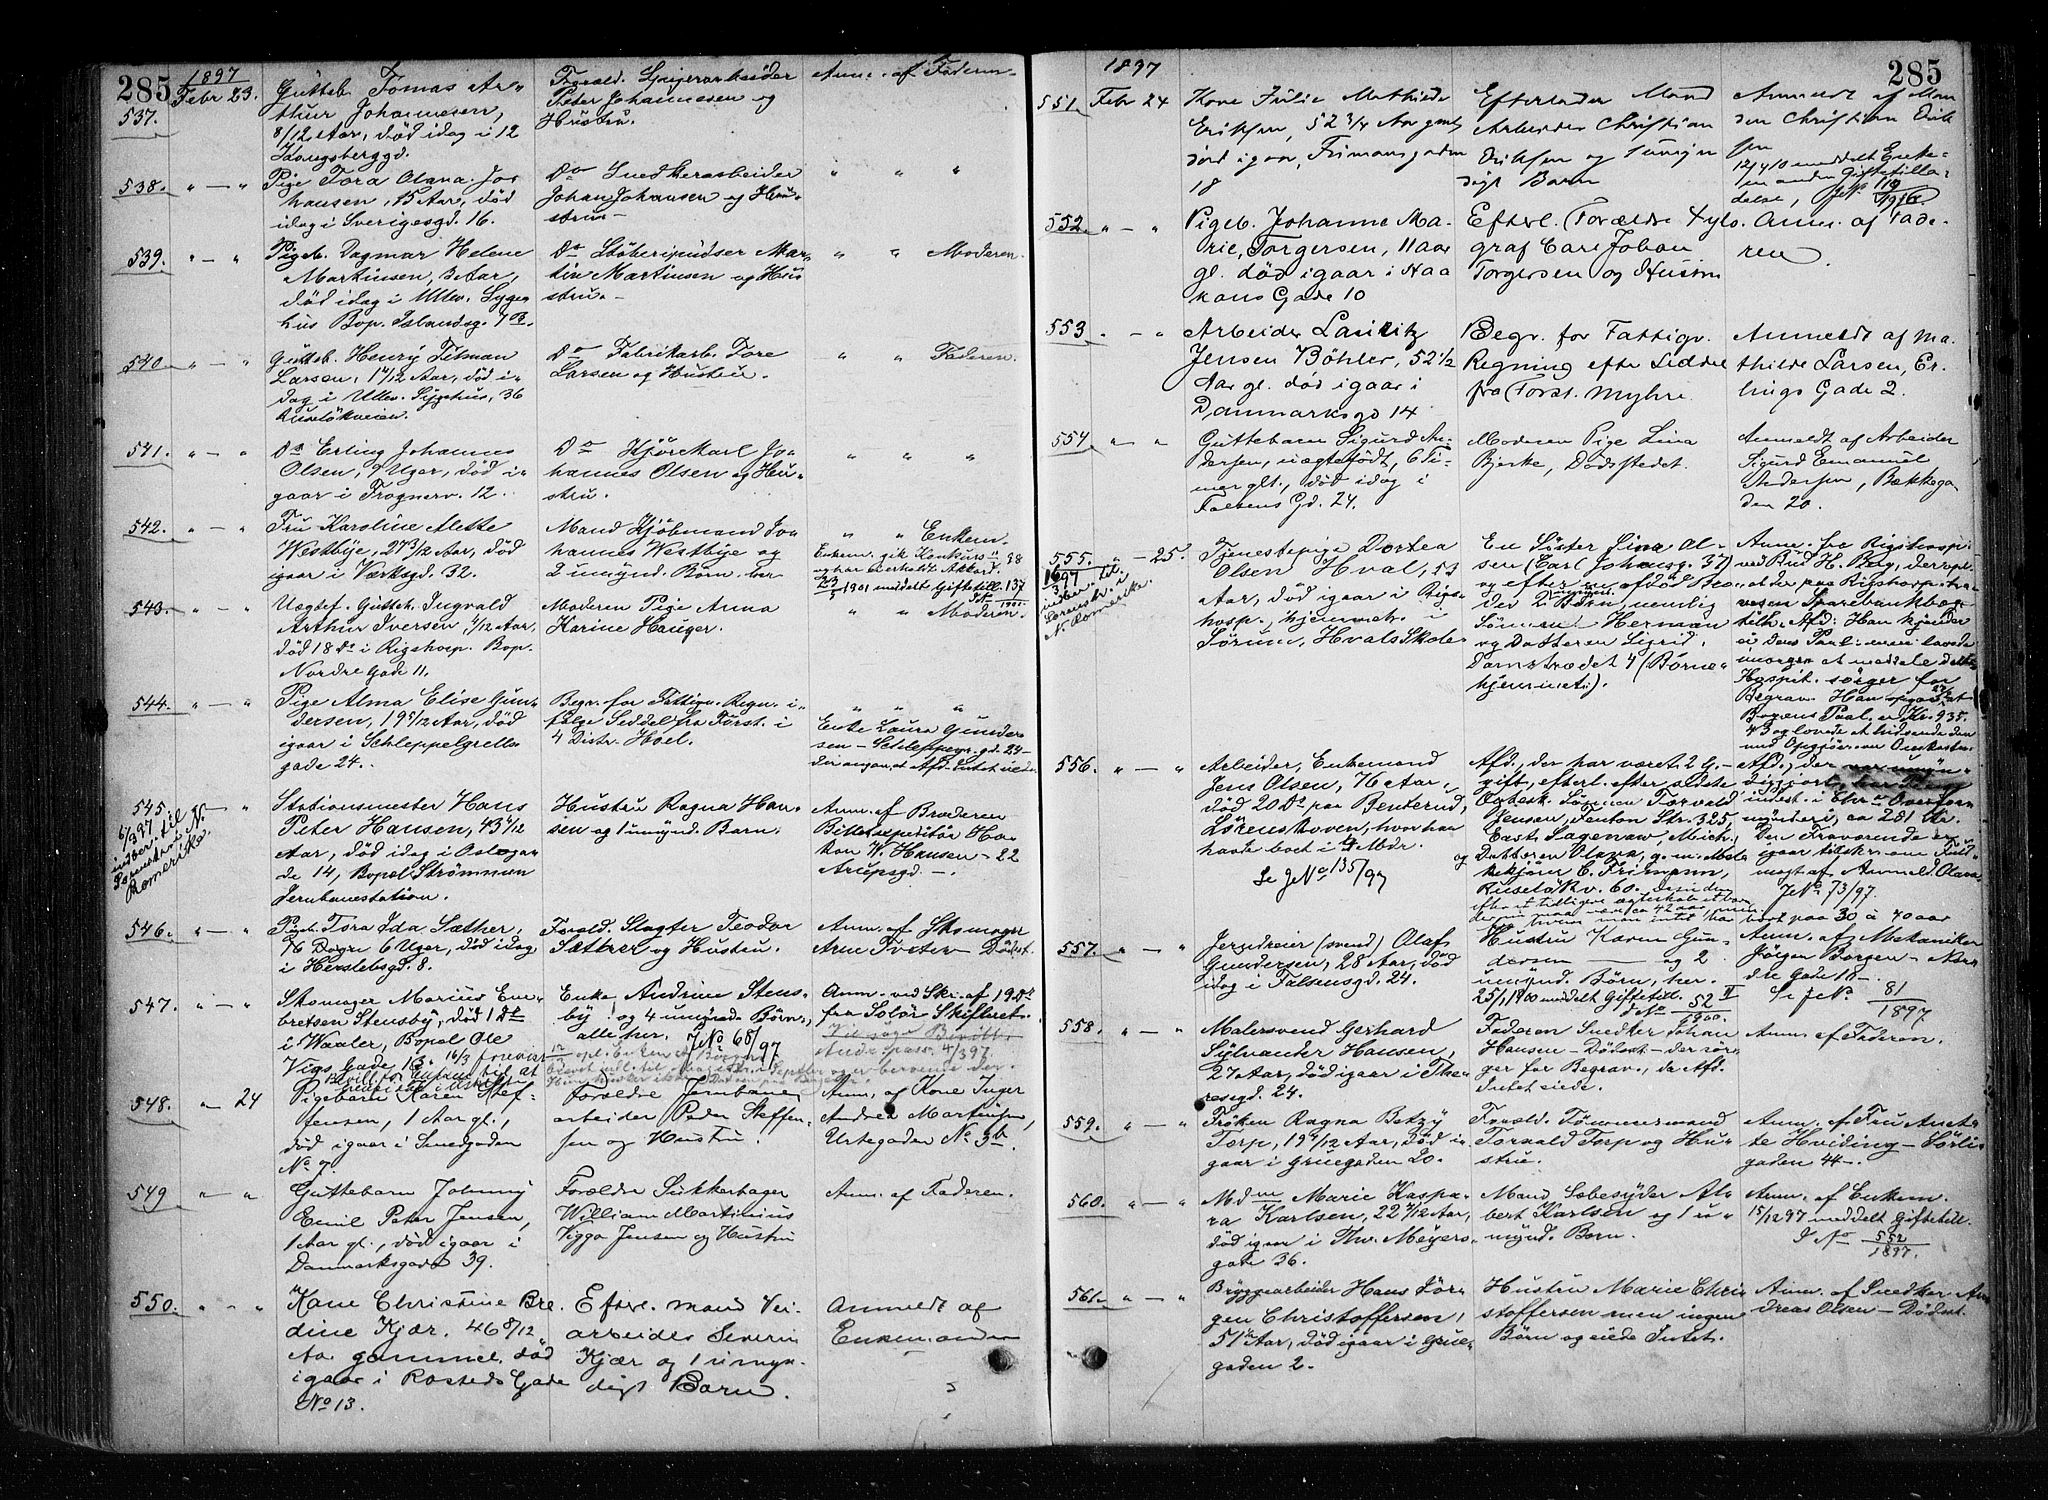 285
1897
537.
Febr 23.
Gutteb. Tomas Ar-
thur Johannesen,
8/12 Aar, död idag i 12
Kongsberggd.
Foræld.
Peter Johannesen og
Hustru.
Anm. af Faderen
538.
" — "
Pige Tora Olava Jo-
hansen, 15 Aar, död
idag i Sverigesgd. 16.
Do Snedkerarbeider
Johan Johansen og Hu-
stru
" " "
539.
" — "
Pigeb. Dagmar Helene
Martinsen, 3 Aar,
död idag i Ullev. Syge-
hus Bop. Islandsg. 7 B.
Do Stöberipudser Mar-
tin Martinsen og Hu-
stru.
" " Moderen.
540
" — "
Gutteb. Henry Tilman
Larsen, 1 Aar, död i-
dag i Ullev. Sygehus, 36
Ruselökveien.
Do Fabrikarb. Tore
Larsen og Hustru.
" " Faderen.
541.
" — "
Do Erling Johannes
Olsen, 9 Uger, död i-
gaar i Frognerv. 12.
Do Kjörekarl Jo-
hannes Olsen og Hu-
stru.
" " "
542.
" — "
Fru Karoline Alette
Westbye, 27 3/12 Aar, död
igaar i Værksgd. 32.
Mand Kjöbmand Jo-
hannes Westbye og
2 umynd. Börn. her
" " Enkem.
Enkem. gik Konkurs i 98
og har overholdt Akkord.
1901 meddelt Giftetill. 137
543.
" — "
Uægtef. Gutteb. Ingvald
Arthur Iversen 4/12 Aar,
död 18 Ds i Rigshosp. Bop.
Nordre Gade 11.
Moderen Pige Anna
Karine Hauger.
" " Moderen.
544.
" — "
Pige Alma Elise Gun-
dersen, 19 5/12 Aar, död
igaar i Schleppelgrells
gade 24.
Begr. for Fattigv. Regn. i-
følge Seddel fra Forst. i
4 Distr. Hoel.
" " "
Enke Laura Gunder-
sen — Schleppegr. gd. 24 —
der angav, at Afd. intet eiede.
545.
6/3 97
indber. til
Sorenskr. i N.
Romerike.
" — "
Stationsmester Hans
Peter Hansen, 43 4/12
Aar, död idag i Osloga-
de 14, Bopæl Strömmen
Jernbanestation.
Hustru Ragna Han-
sen og 1 umynd. Barn.
Anm. af Broderen
Billetexpeditör Ha-
kon W. Hansen — 22
Arupsgd —.
546.
" — "
Pigeb. Tora Ida Sæther,
6 Uger, död idag
i Herslebsgd. 8.
Foræld. Slagter Teodor
Sæther og Hustru.
Anm. af Skomager
Arne Tveter — Dödst.
547.
" — "
Skomager Marius Em-
bretsen Stensby, död 1 Ds
i Waaler, Bopæl Ole
Vigs Gade 13.
Enke Andrine Stens-
by og 4 umynd. Börn,
alle her.
JNo 68/97
Anm. ved Skr. af 19 Ds
fra Solör Skifteret.
548.
" — 24
Pigebarn Karen Stef-
fensen, 1 Aar gl.,
död igaar i Smedgaden
No 7.
Forældre Jernbane-
arbeider Peder Steffen-
sen og Hustru.
Anm. af Kone Inger
Andrea Martinsen,
Urtegaden No 3b.
549
" — "
Guttebarn Johnny
Emil Peter Jensen,
1 Aar gl., död igaar i
Danmarksgade 39.
Forældre Sukkerbager
William Martinius
Viggo Jensen og Hustru
Anm. af Faderen.
550.
" — "
Kone Christine Bre-
dine Kjær, 46 8/12
Aar gammel, död
igaar i Rosteds Gade
No 13.
Efterl. mand Vei-
arbeider Severin
Kjær og 1 umyn-
digt Barn.
Anmeldt af
Enkemanden
285
1897
551
Febr 24
Kone Julie Mathilde
Eriksen, 52 3/4 Aar gml.
död igaar, Frimansgaden
18
Efterlader Mand
Arbeider Christian
Eriksen og 1 umyn-
digt Barn
Anmeldt af Man-
den Christian Erik-
sen
12/4 10 meddelt Enke-
manden Giftetilla-
delse, JNo 119/1910
552.
" — "
Pigeb. Johanne Ma-
rie Torgersen, 11 Aar
gl. död igaar i Haa-
kons Gade 10
Efterl. Forældre Xylo-
graf Carl Johan
Torgersen og Hustru
Anm. af Fade-
ren
553
" — "
Arbeider Lauritz
Jensen Böhler, 52 1/2
Aar gl. död igaar i
Danmarksgd 14
Begr. for Fattigv.
Regning efter Seddel
fra Forst. Myhre.
Anmeldt af Ma-
thilde Larsen, Er-
lings Gade 2.
554
" — "
Guttebarn Sigurd An-
dersen, uægtefödt, 6 Ti-
mer glt., död idag i
Falsens Gd. 24.
Moderen Pige Lina
Bjerke, Dödsstedet.
Anmeldt af Arbeider
Sigurd Emanuel
Andersen, Bækkega-
den 20.
555.
" — 25.
indber. til
Sorenskr. i
N. Romerike.
Tjenestepige Dortea
Olsen Hval, 53
Aar, död igaar i Rigs-
hosp., hjemmeh. i
Sörum, Hvals Skole
En Söster Lina Ol-
sen (Carl Johansg. 37)
og efter Bro-
der 2 umynd. Börn, nemlig
Sönnen Herman
og Datteren Sigrid,
Damstrædet 4 (Börne-
hjemmet).
Anm. fra Rigshosp.
ved Bud H. Berg, der opl.
at der paa Rigshosp. ha-
vesen Sparebankbog
tilh. Afd.
imorgen at meddele dette
Hospit. sörger for
Begrav. Han opgav at
Bogens Paal. er Kr. 935.
43 og lovede at indsende den
med Opgjör over Omkostn.
556.
" — "
Arbeider, Enkemand
Jens Olsen, 76 Aar,
död 20 Ds paa Benterud,
Lörenskoven, hvor han
havde boet i 4 Mdr.
Se JNo 135/97
Afd., der har været 2 G.
gift, efterl. efter ældste
Ægtesk. Sönnen Torvald
Jensen, Fenton Str. 325,
East Sagenaw, Mich.,
og Datteren Olava, g. m. Ma-
E. Frimann,
Ruselökv. 60.
Den Fraværende er
igaar tilskr. om Fuld-
magt af Anmeld. Olava.
JNo 73/97.
557.
" — "
Jerndreier (svend) Olaf
Gundersen, 28 Aar, död
idag i Falsensgd. 24.
Hustru Karen Gun-
dersen — og 2
umynd. Börn, her.
25/1 1900 meddelt Giftetil.
JNo 52/1900
Anm. af Mekaniker
Jörgen Borgen — Nor-
dre Gade 10 —.
Se JNo 81/1897
558.
" — "
Malersvend Gerhard
Sylvander Hansen,
27 Aar, död igaar i The-
resegd. 24.
Faderen Snedker Johan
Hansen — Dödsst. — der sör-
ger for Begrav., da Afd.
Intet eiede.
Anm. af Faderen.
559.
" — "
Fröken Ragna Betzy
Torp, 19 Aar, död i-
gaar i Gruegaden 20.
Foræld. Tömmermand
Torvald Torp og Hu-
stru.
Anm. af Fru Anet-
te Hviding — Sörli-
gaden 44 —.
560.
" — "
Mdm Marie Kaspa-
ra Karlsen, 22 Aar,
död igaar i Thv. Meyers-
gade 36.
Mand Sæbesyder Al-
bert Karlsen og 1 u-
mynd. Barn.
Anm. af Enkem.
15/12 97 meddelt Giftetill.
J No 552/1897.
561.
" — "
Bryggearbeider Hans Jör-
gen Christoffersen,
51 Aar, död igaar i Grue-
gaden 2.
Hustru Marie Chri-
stoffersen men ingen
Börn og eiede Intet.
Anm. af Snedker An-
dreas Olsen — Dödsst.